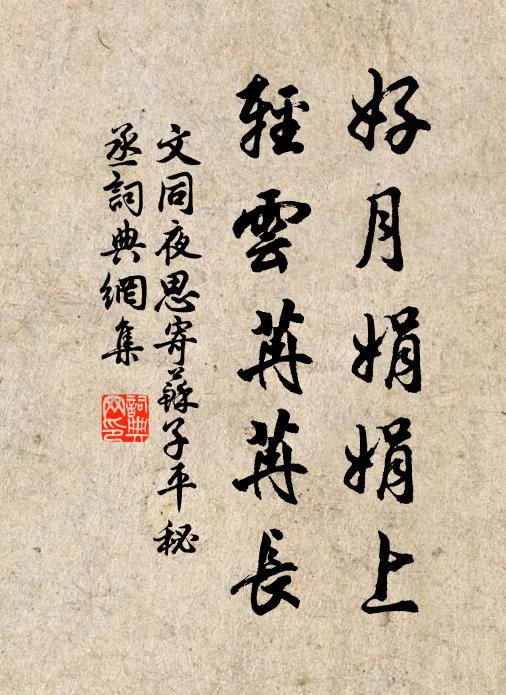 好月娟娟上
輕雲苒苒長
文同夜思寄蘇子平秘
丞詞典網集
詞典網印